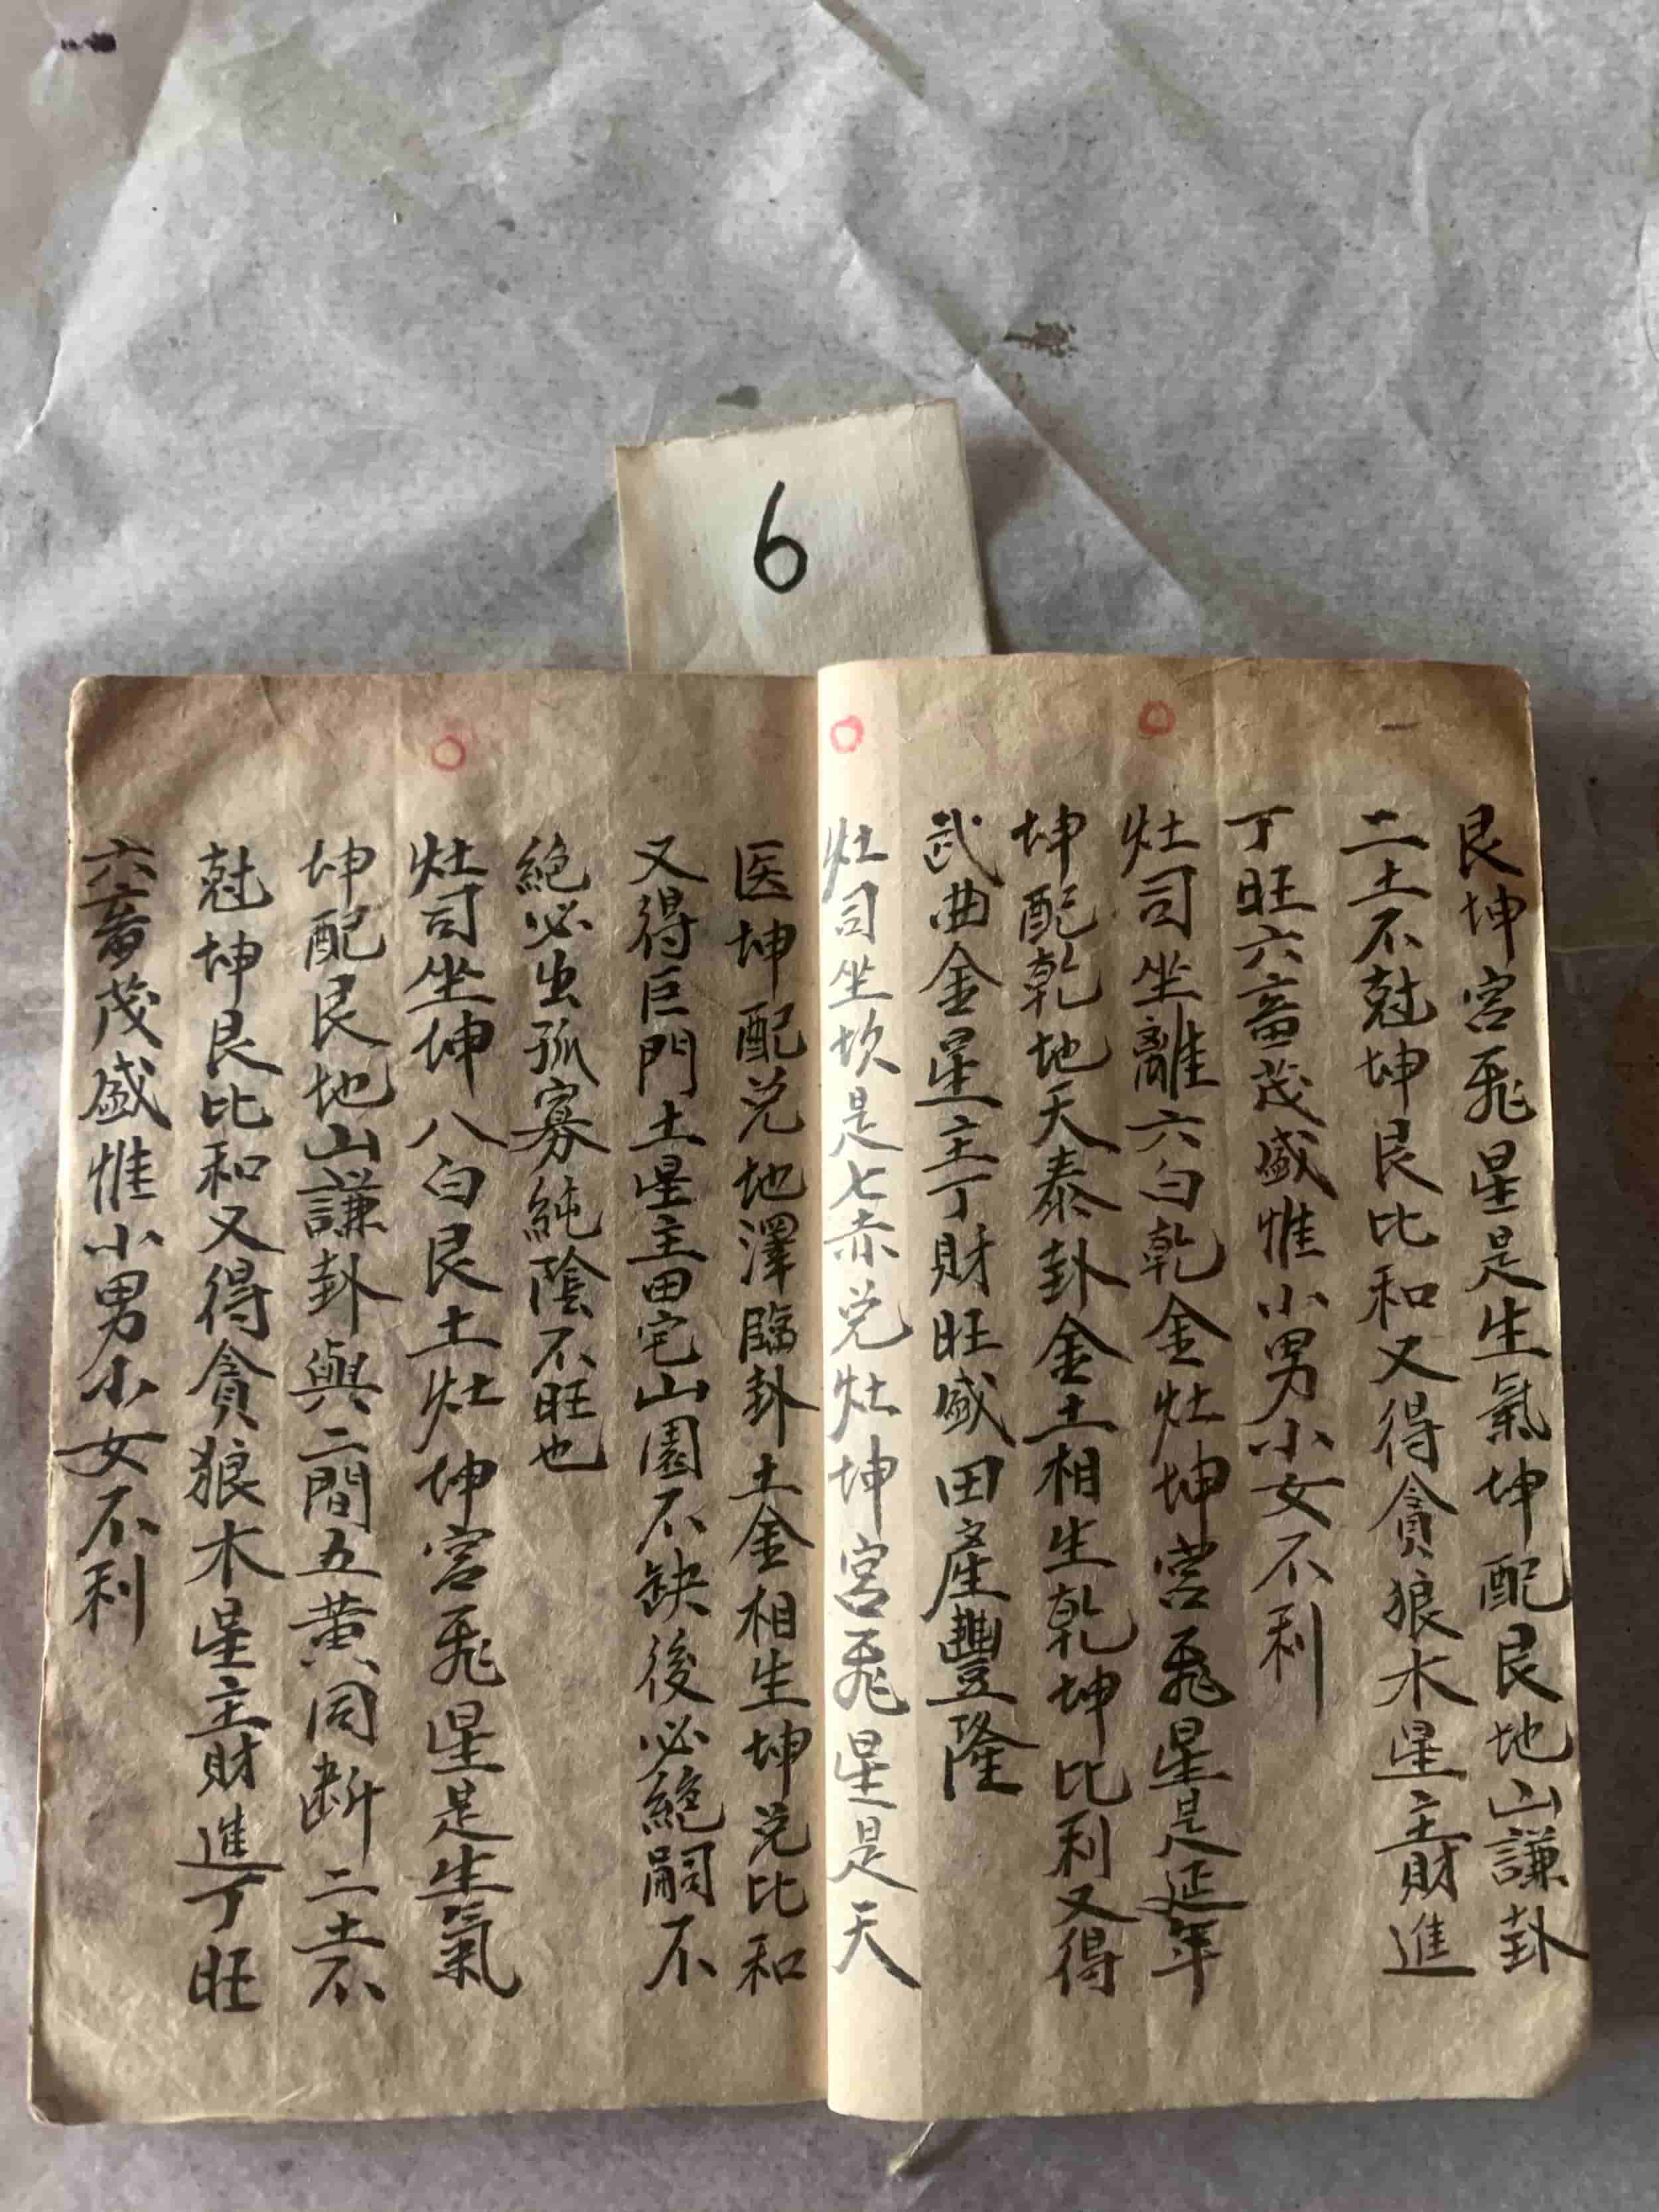 6
艮坤宮飛星是生氣坤配艮地山謙卦
二土不尅坤艮比和又得貪狼木星主財進
丁旺六畜茂盛惟小男小女不利
灶司坐離六白乾金灶坤宮飛星是延年
坤配乾地天泰卦金土相生乾坤比利又得
武曲金星主丁財旺盛田產豐隆
灶司坐坎是七赤兑灶坤宮飛星是天
医坤配兑地澤臨卦土金相生坤兑比和
又得巨門土星主田宅山園不缺後必絕嗣不
絕必出孤寡純陰不旺也
灶司坐坤八白艮土灶坤宮飛星是生氣
坤配艮地山謙卦與二間五黃同断二土不
尅坤艮比和又得貪狼木星主財進丁旺
六畜茂盛惟小男小女不利